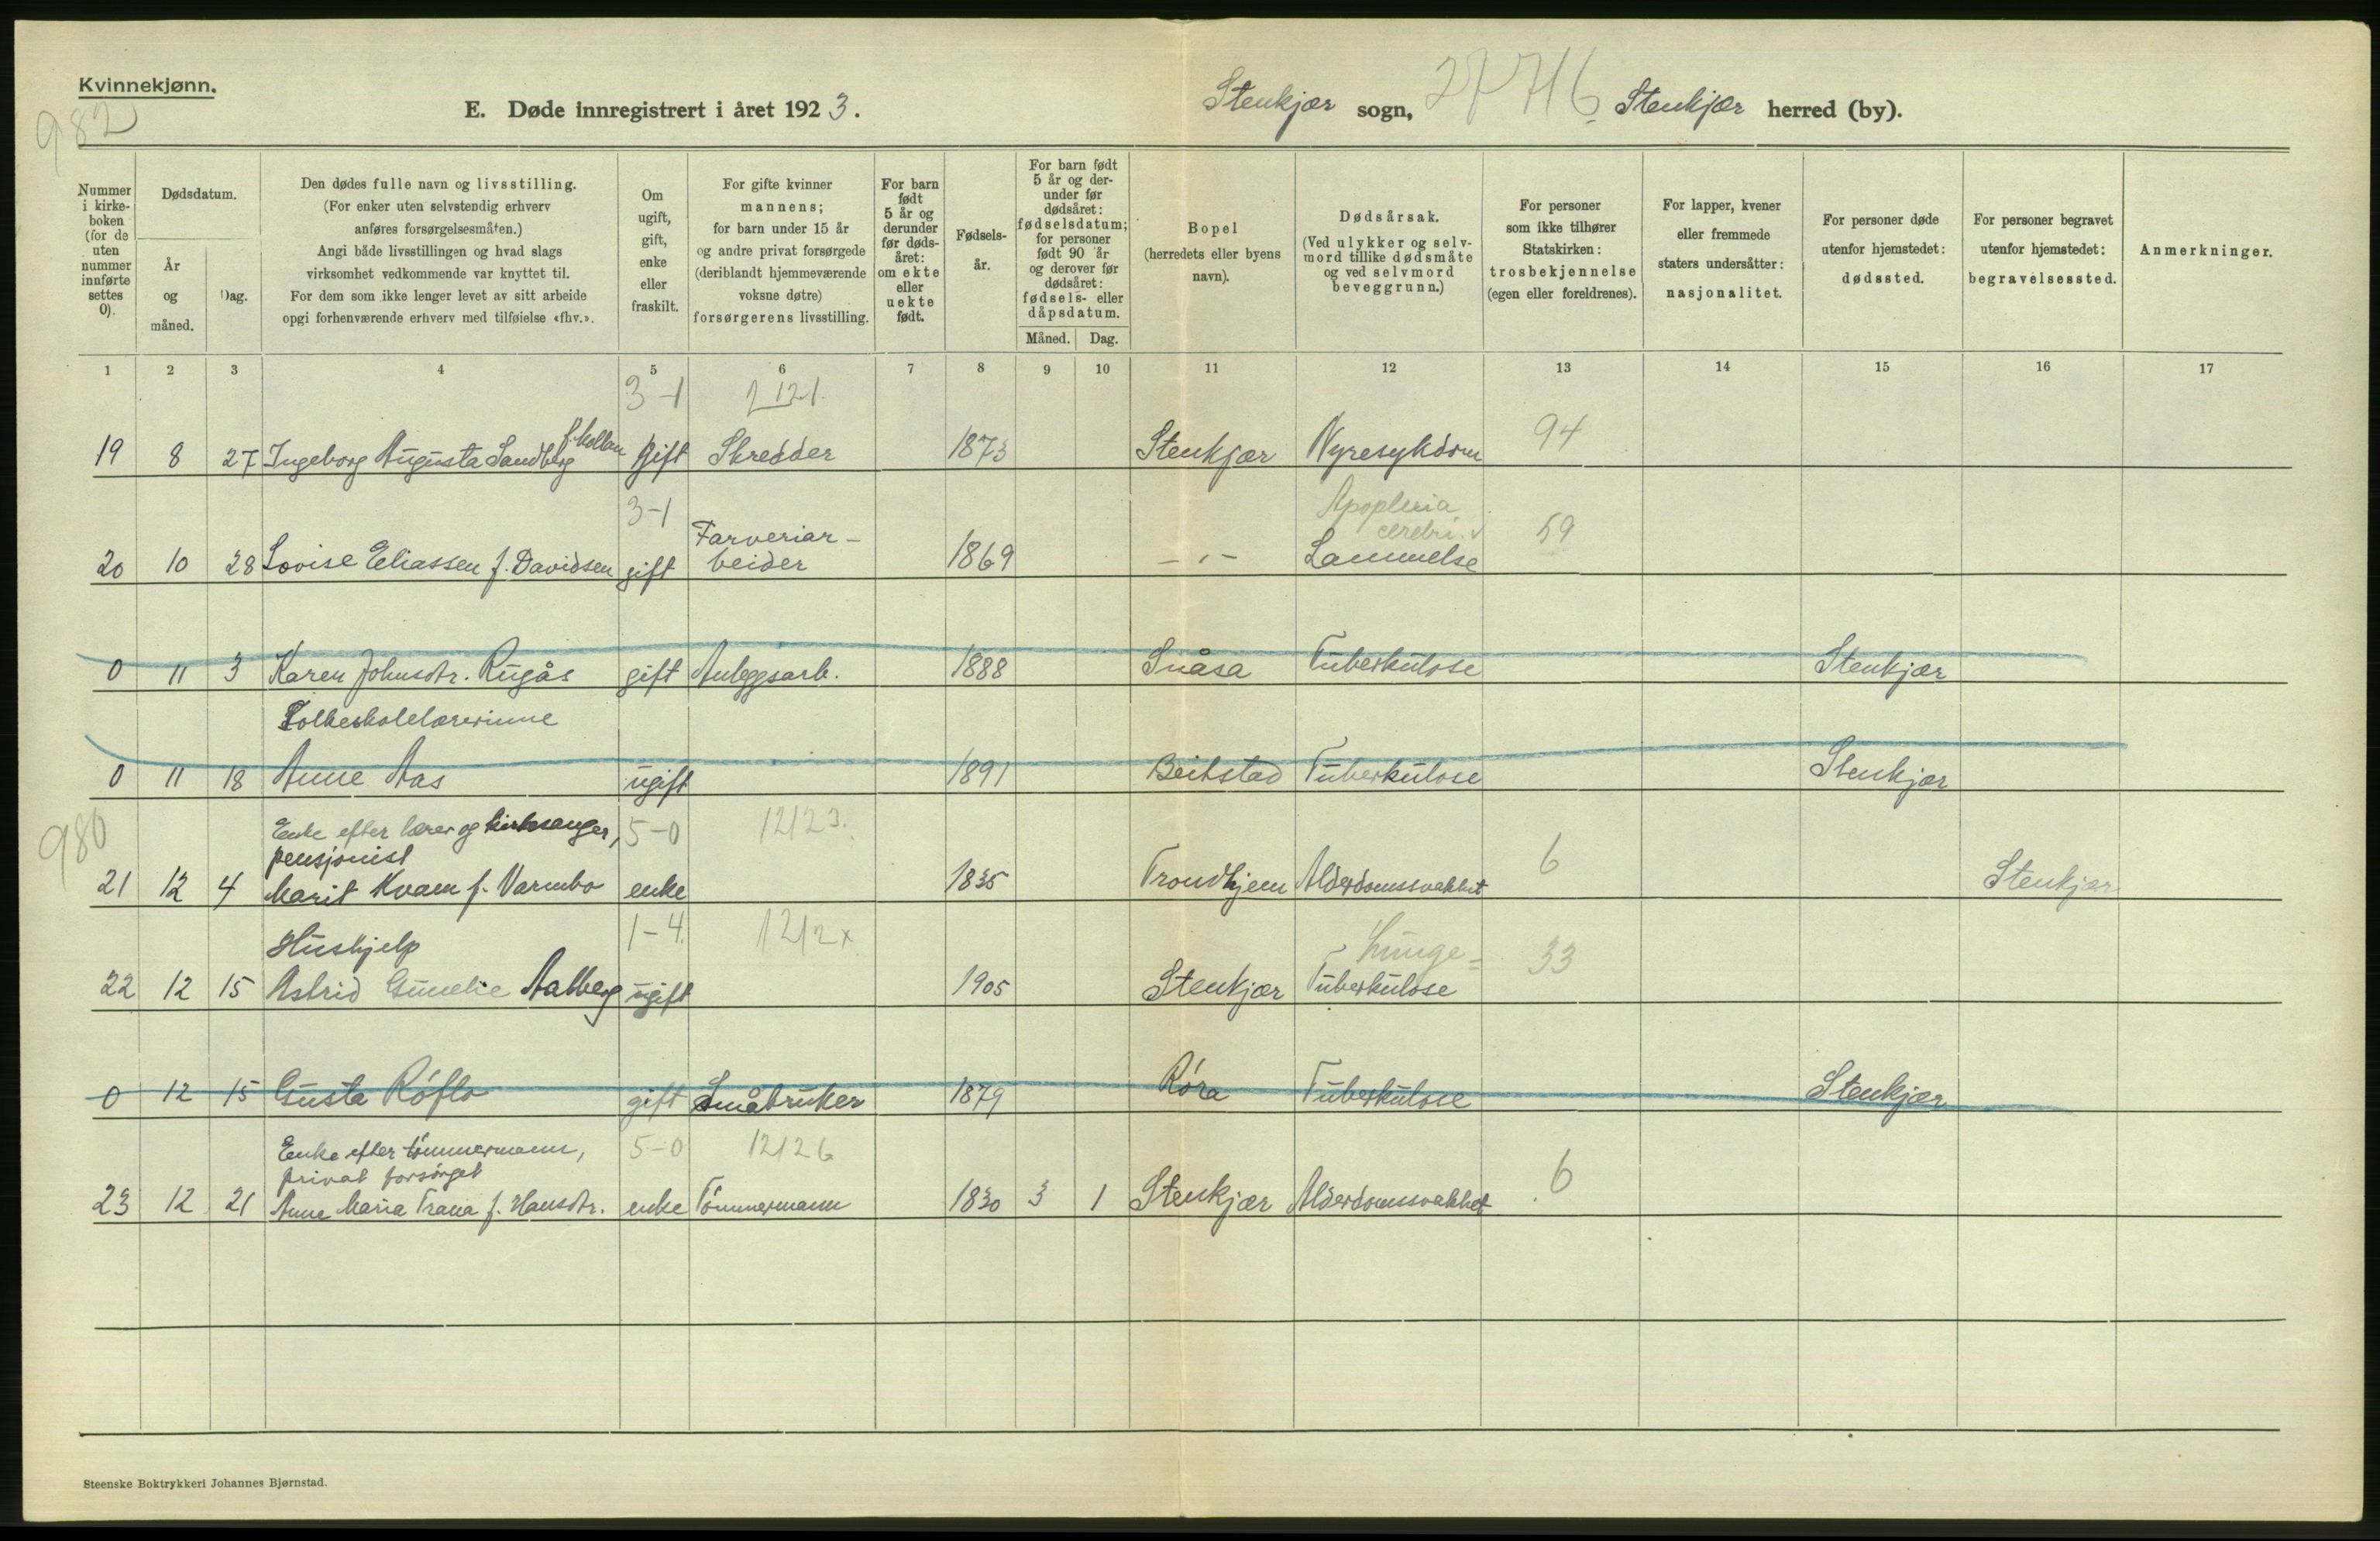 Kvinnekjønn.
982
E. Døde innregistrert i året 1923.
Stenkjær sogn, 27 716 Stenkjær herred (by).
Nummer i kirke-boken (for de uten nummer innførte settes 0).
Dødsdatum.
År og måned.
Dag.
Den dødes fulle navn og livsstilling.
(For enker uten selvstendig erhverv
anføres forsørgelsesmåten.)
Angi både livsstillingen og hvad slags
virksomhet vedkommende var knyttet til.
For dem som ikke lenger levet av sitt arbeide
opgi forhenværende erhverv med tilføielse «fhv.».
Om ugift, gift, enke eller fraskilt.
For gifte kvinner
mannens;
for barn under 15 år
og andre privat forsørgede
(deriblandt hjemmeværende
voksne døtre)
forsørgerens livsstilling.
For barn født 5 år og derunder før døds-året: om ekte eller uekte født.
Fødsels-år.
For barn født 5 år og der-under før dødsåret: fødselsdatum; for personer født 90 år og derover før dødsåret: fødsels- eller dåpsdatum.
Måned. Dag.
Bopel
(herredets eller byens
navn).
Dødsårsak.
(Ved ulykker og selv-
mord tillike dødsmåte
og ved selvmord
beveggrunn.)
For personer
som ikke tilhører
Statskirken:
trosbekjennelse
(egen eller foreldrenes).
For lapper, kvener
eller fremmede
staters undersåtter:
nasjonalitet.
For personer døde
utenfor hjemstedet:
dødssted.
For personer begravet
utenfor hjemstedet:
begravelsessted.
Anmerkninger.
1 2 3 4 5 6 7 8 9 10 11 12 13 14 15 16 17
3-1 2121.
19 8 27 Ingeborg Augusta Sandberg f. Mollan gift Skredder 1873 Stenkjær Nyresykdom 94
3-1 Apoplexia cerebri. 59
20 10 28 Lovise Eliassen f. Davidsen gift Farveriar-beider 1869 - " - Lammelse
0 11 3 Karen Johnsdtr. Rugås gift Anleggsarb. 1888 Snåsa Tuberkulose Stenkjær
Folkeskolelærerinne
0 11 18 Anne Aas ugift 1891 Beitstad Tuberkulose Stenkjær
980
Enke efter lærer og kirkesanger, 5-0 12123.
pensjonist
21 12 4 Marit Kvam f. Varmbo enke 1835 Trondhjem Alderdomssvakhet 6 Stenkjær
Hushjelp 1-4. 1212x Lunge- 33
22 12 15 Astrid Gunelie Aalberg ugift 1905 Stenkjær Tuberkulose
0 12 15 Gusta Røflo gift Småbruker 1879 Røra Tuberkulose Stenkjær
Enke efter tømmermann, 5-0 12126
privat forsørget
23 12 21 Anne Maria Trana f. Hansdtr. enke Tømmermann 1830 3 1 Stenkjær Alderdomssvakhet 6
Steenske Boktrykkeri Johannes Bjørnstad.